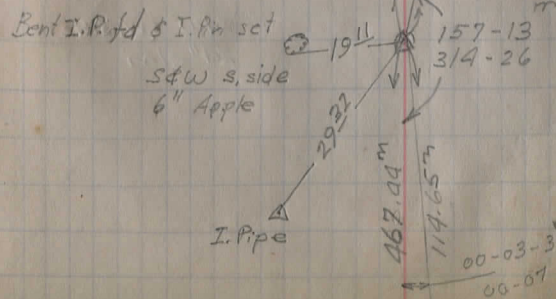 Bent I.P. fd & I.Pin set
19 11
157-13
314-26
S&W s. side
6" Apple
29 32
467.44 m
114.65 m
I. Pipe
00-03-3
00-07